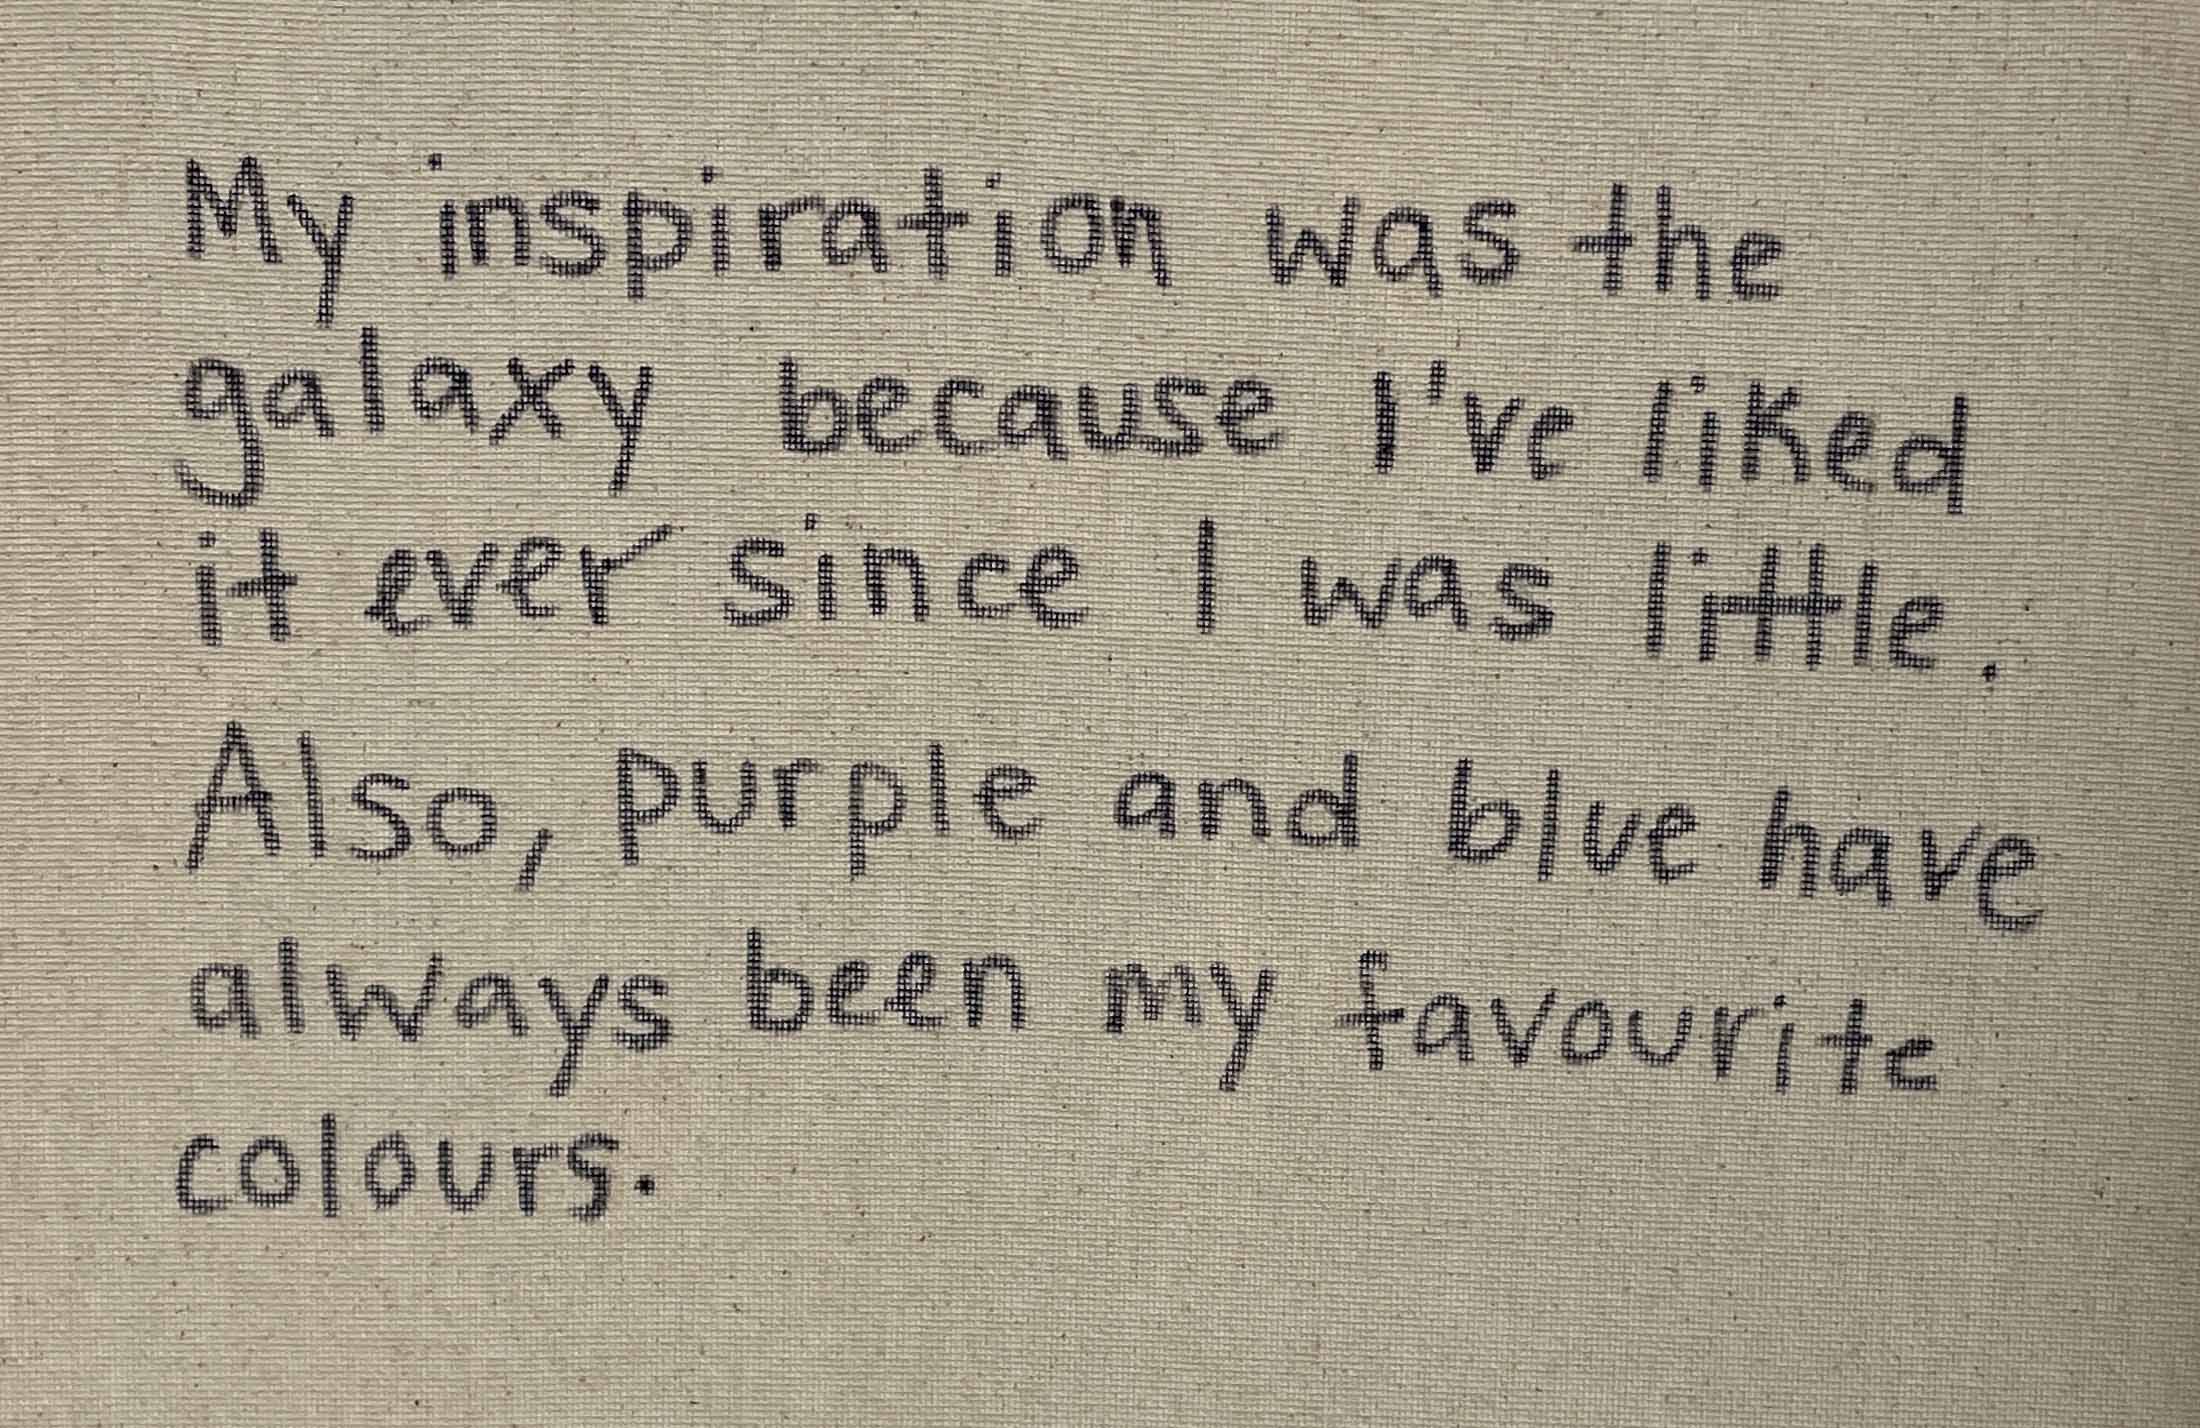 My inspiration was the
galaxy because I've liked
it ever since I was little.
Also, purple and blue have
always been my favourite
colours.